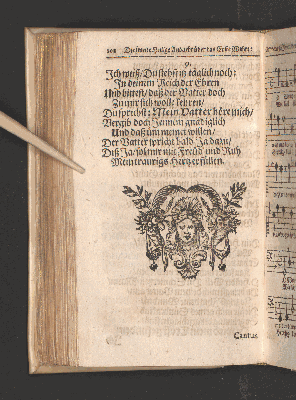 202 Die fünfte Heilige Andacht über das
9.
Ich weiß / Du stehst in täglich noch:
In deinem Reich der Ehren
Und bittest / daß der Vatter doch
Zu mir sich woll kehren /
Du sprichst: Mein Vatter höre mich /
Vergib doch genädiglich
Und daß um meinet willen /
Der Vatter spricht bald Ja dazu /
Diß Ja sol mir mit Freud und Ruh
Mein trauriges Hertze füllen.
Cantus.